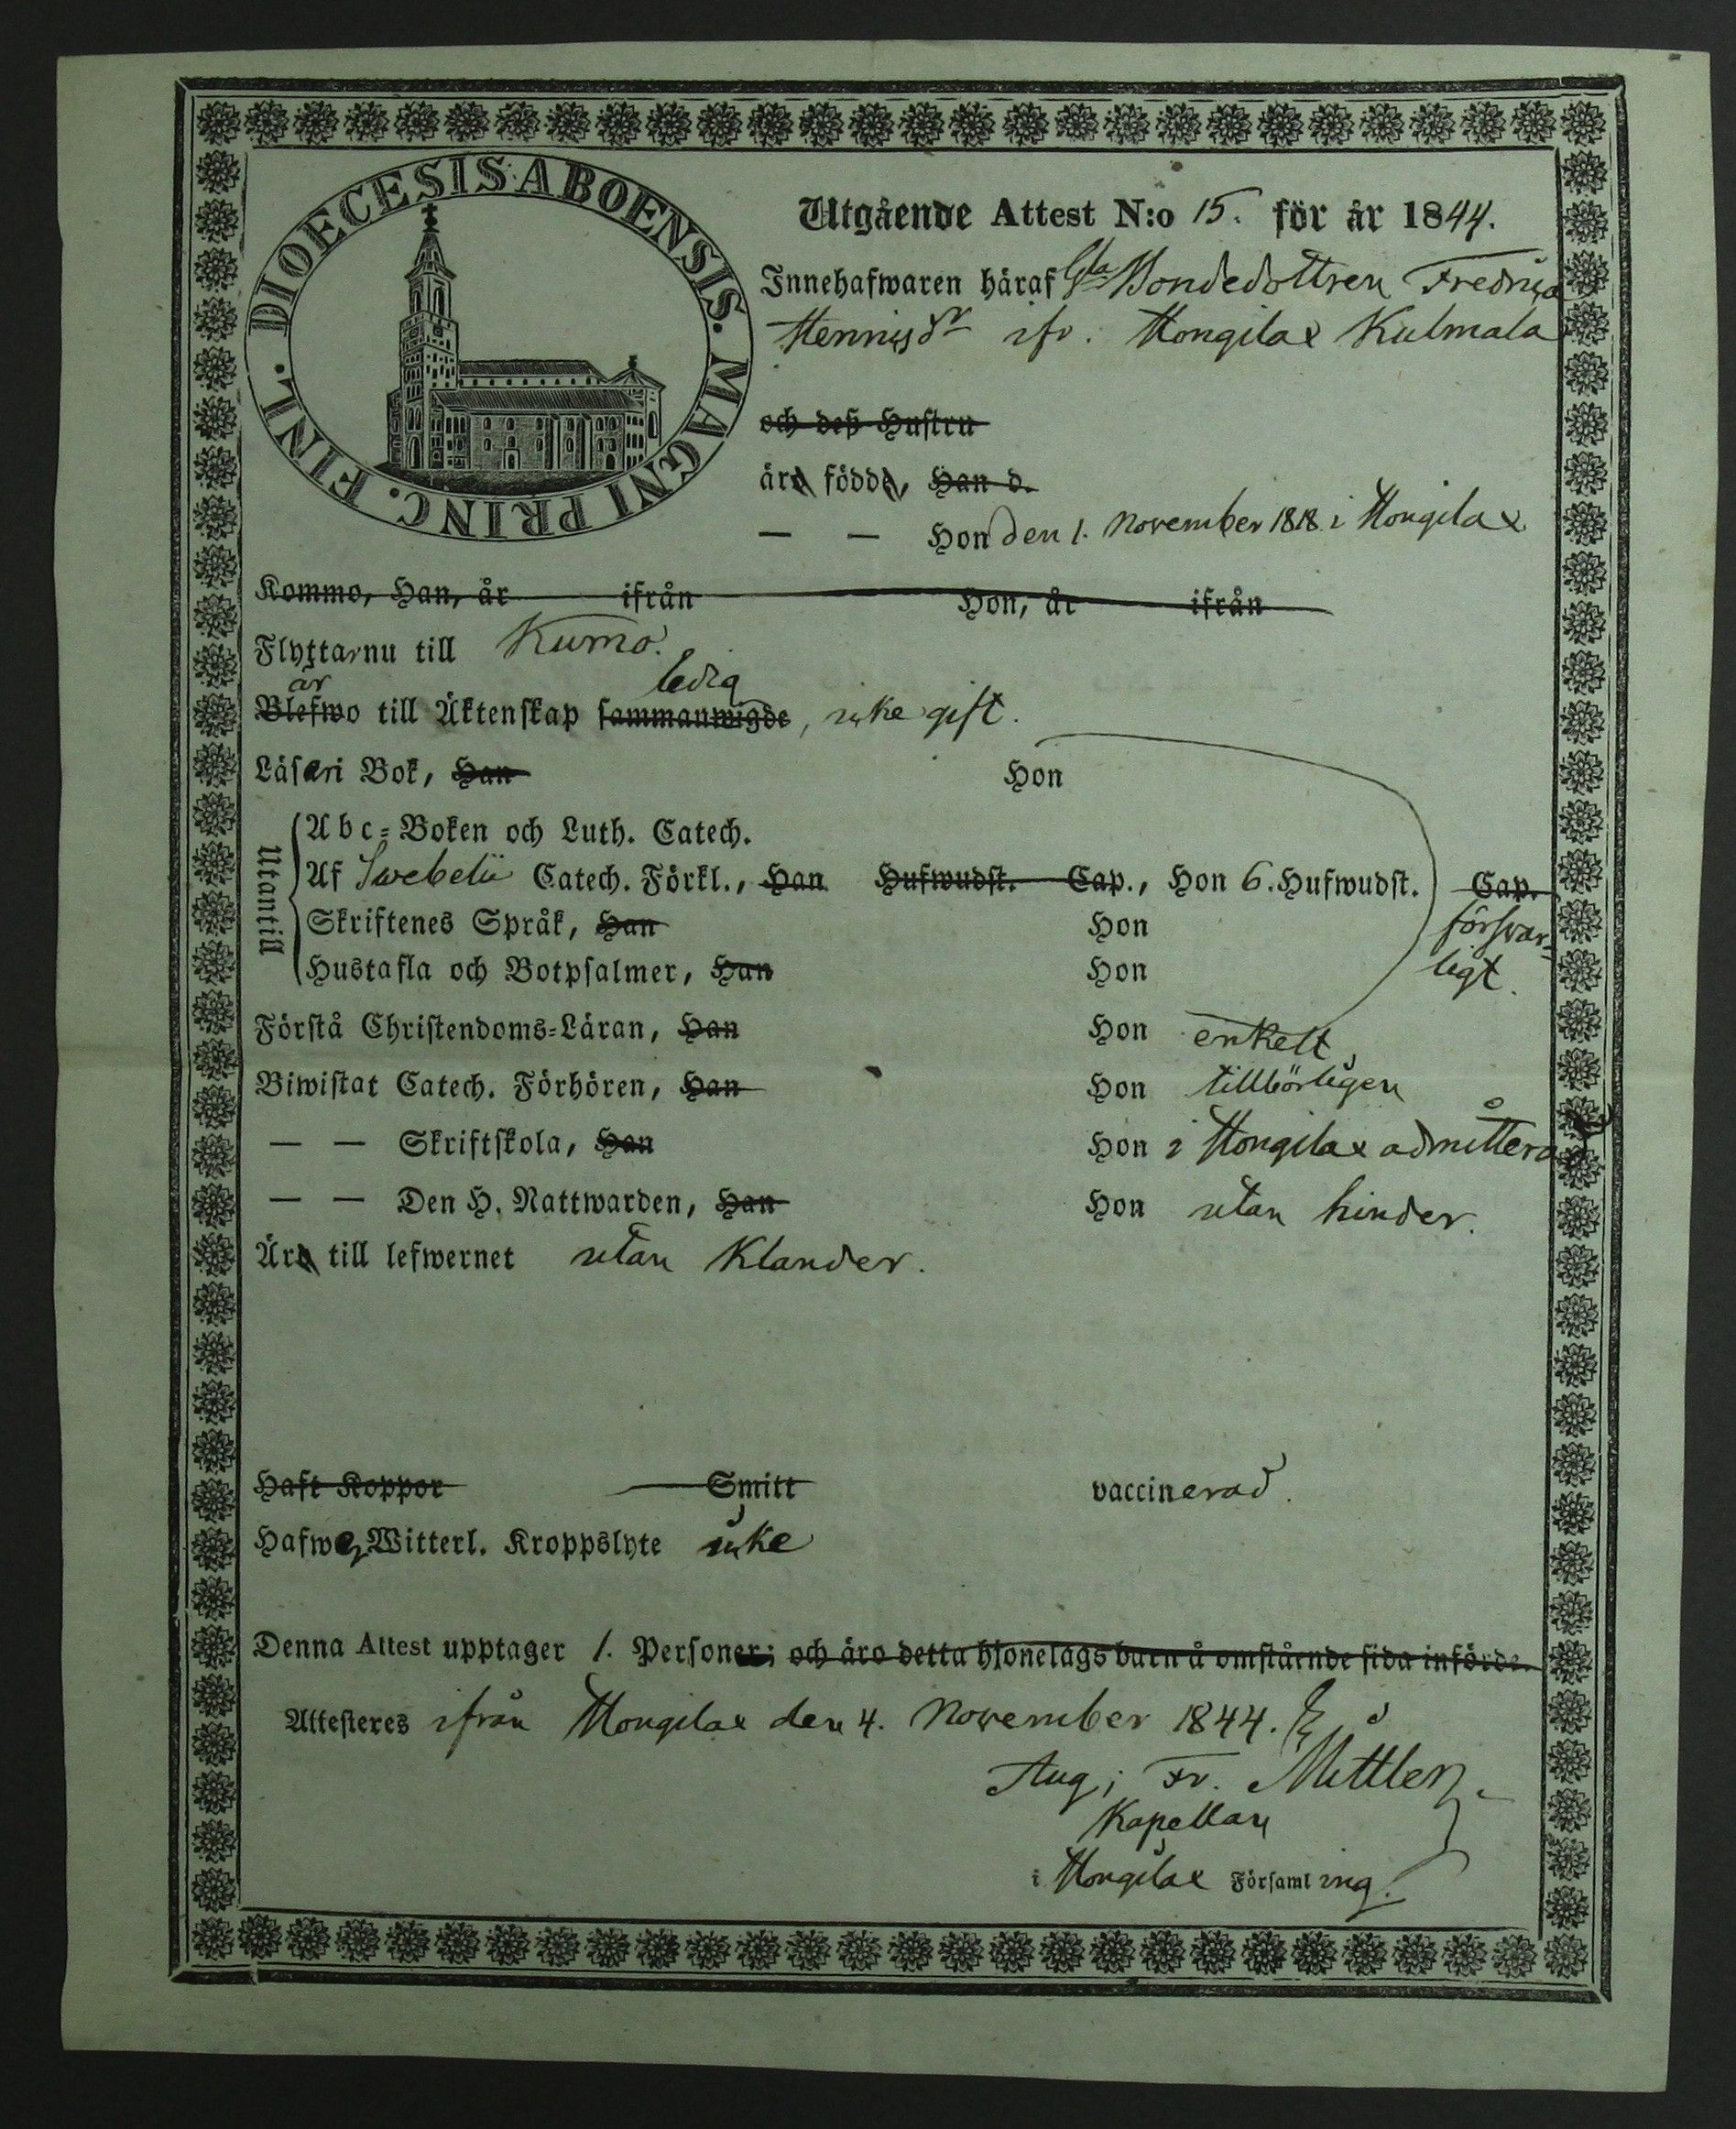 DIOECESIS ABOENSIS. MAGNI PRINC. FINL.
Utgående Attest N:o 15. för år 1844.
Innehafwaren häraf Bondedottren Fredrica
Hennisdr ifr. Hongilax Kulmala
och deß Hustru
äro födde, Han d.
— — Hon den 1. November 1818. i Hongilax
Kommo, Han, år ifrån Hon, år ifrån
Flyttar nu till Kumo.
är ledig
Blefwo till Äktenskap sammanwigde, icke gift.
Läser i Bok, Han Hon
Utantill
Abc-Boken och Luth. Catech.
Af Swebelii Catech. Förkl., Han Hufwudst. Cap., Hon 6. Hufwudst. Cap.
Skriftenes Språk, Han Hon försvar-
Hustafla och Botpsalmer, Han Hon ligt.
Förstå Christendoms-Läran, Han Hon enkelt,
Biwistat Catech. Förhören, Han Hon tillbörligen
— — Skriftskola, Han Hon i Hongilax admitterad
— — Den H. Nattwarden, Han Hon utan hinder.
Äro till lefwernet utan Klander.
Haft Koppor Smitt vaccinerad.
Hafwer Witterl. Kroppslyte icke
Denna Attest upptager 1. Personer; och äro detta hjonelags barn å omstående sida införde.
Attesteres ifrån Hongilax den 4. November 1844.
Aug: Fr. Mittler
Kapellan
i Hongilax Församling.